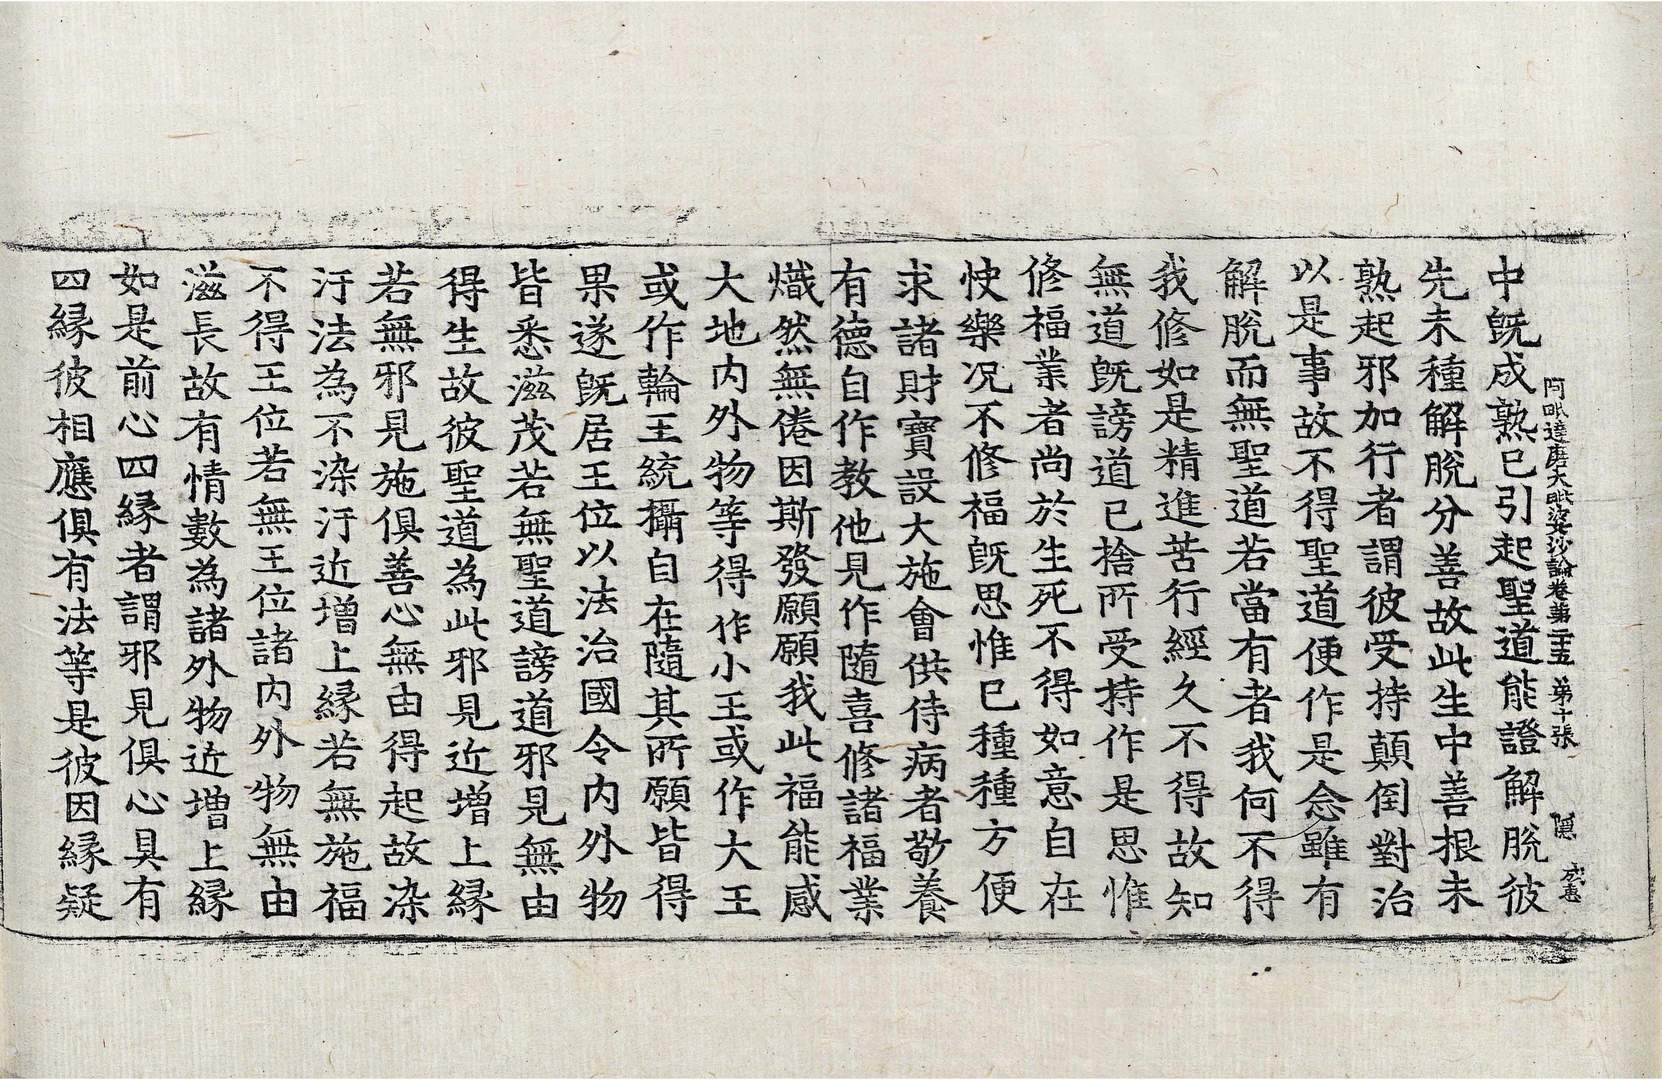 阿毗達磨大毗婆沙論卷第三十五 第十張 隱
中旣成熟已引起聖道能證解脫彼
先未種解脫分善故此生中善根未
熟起邪加行者謂彼受持顛倒對治
以是事故不得聖道便作是念雖有
解脫而無聖道若當有者我何不得
我修如是精進苦行經久不得故知
無道旣謗道已捨所受持作是思惟
修福業者尚於生死不得如意自在
快樂况不修福旣思惟已種種方便
求諸財寶設大施會供侍病者敬養
有德自作教他見作隨喜修諸福業
熾然無倦因斯發願願我此福能感
大地內外物等得作小王或作大王
或作輪王統攝自在隨其所願皆得
果遂旣居王位以法治國令內外物
皆悉滋茂若無聖道謗道邪見無由
得生故彼聖道為此邪見近增上緣
若無邪見施俱善心無由得起故染
汙法為不染汙近增上緣若無施福
不得王位若無王位諸內外物無由
滋長故有情數為諸外物近增上緣
如是前心四緣者謂邪見俱心具有
四緣彼相應俱有法等是彼因緣疑